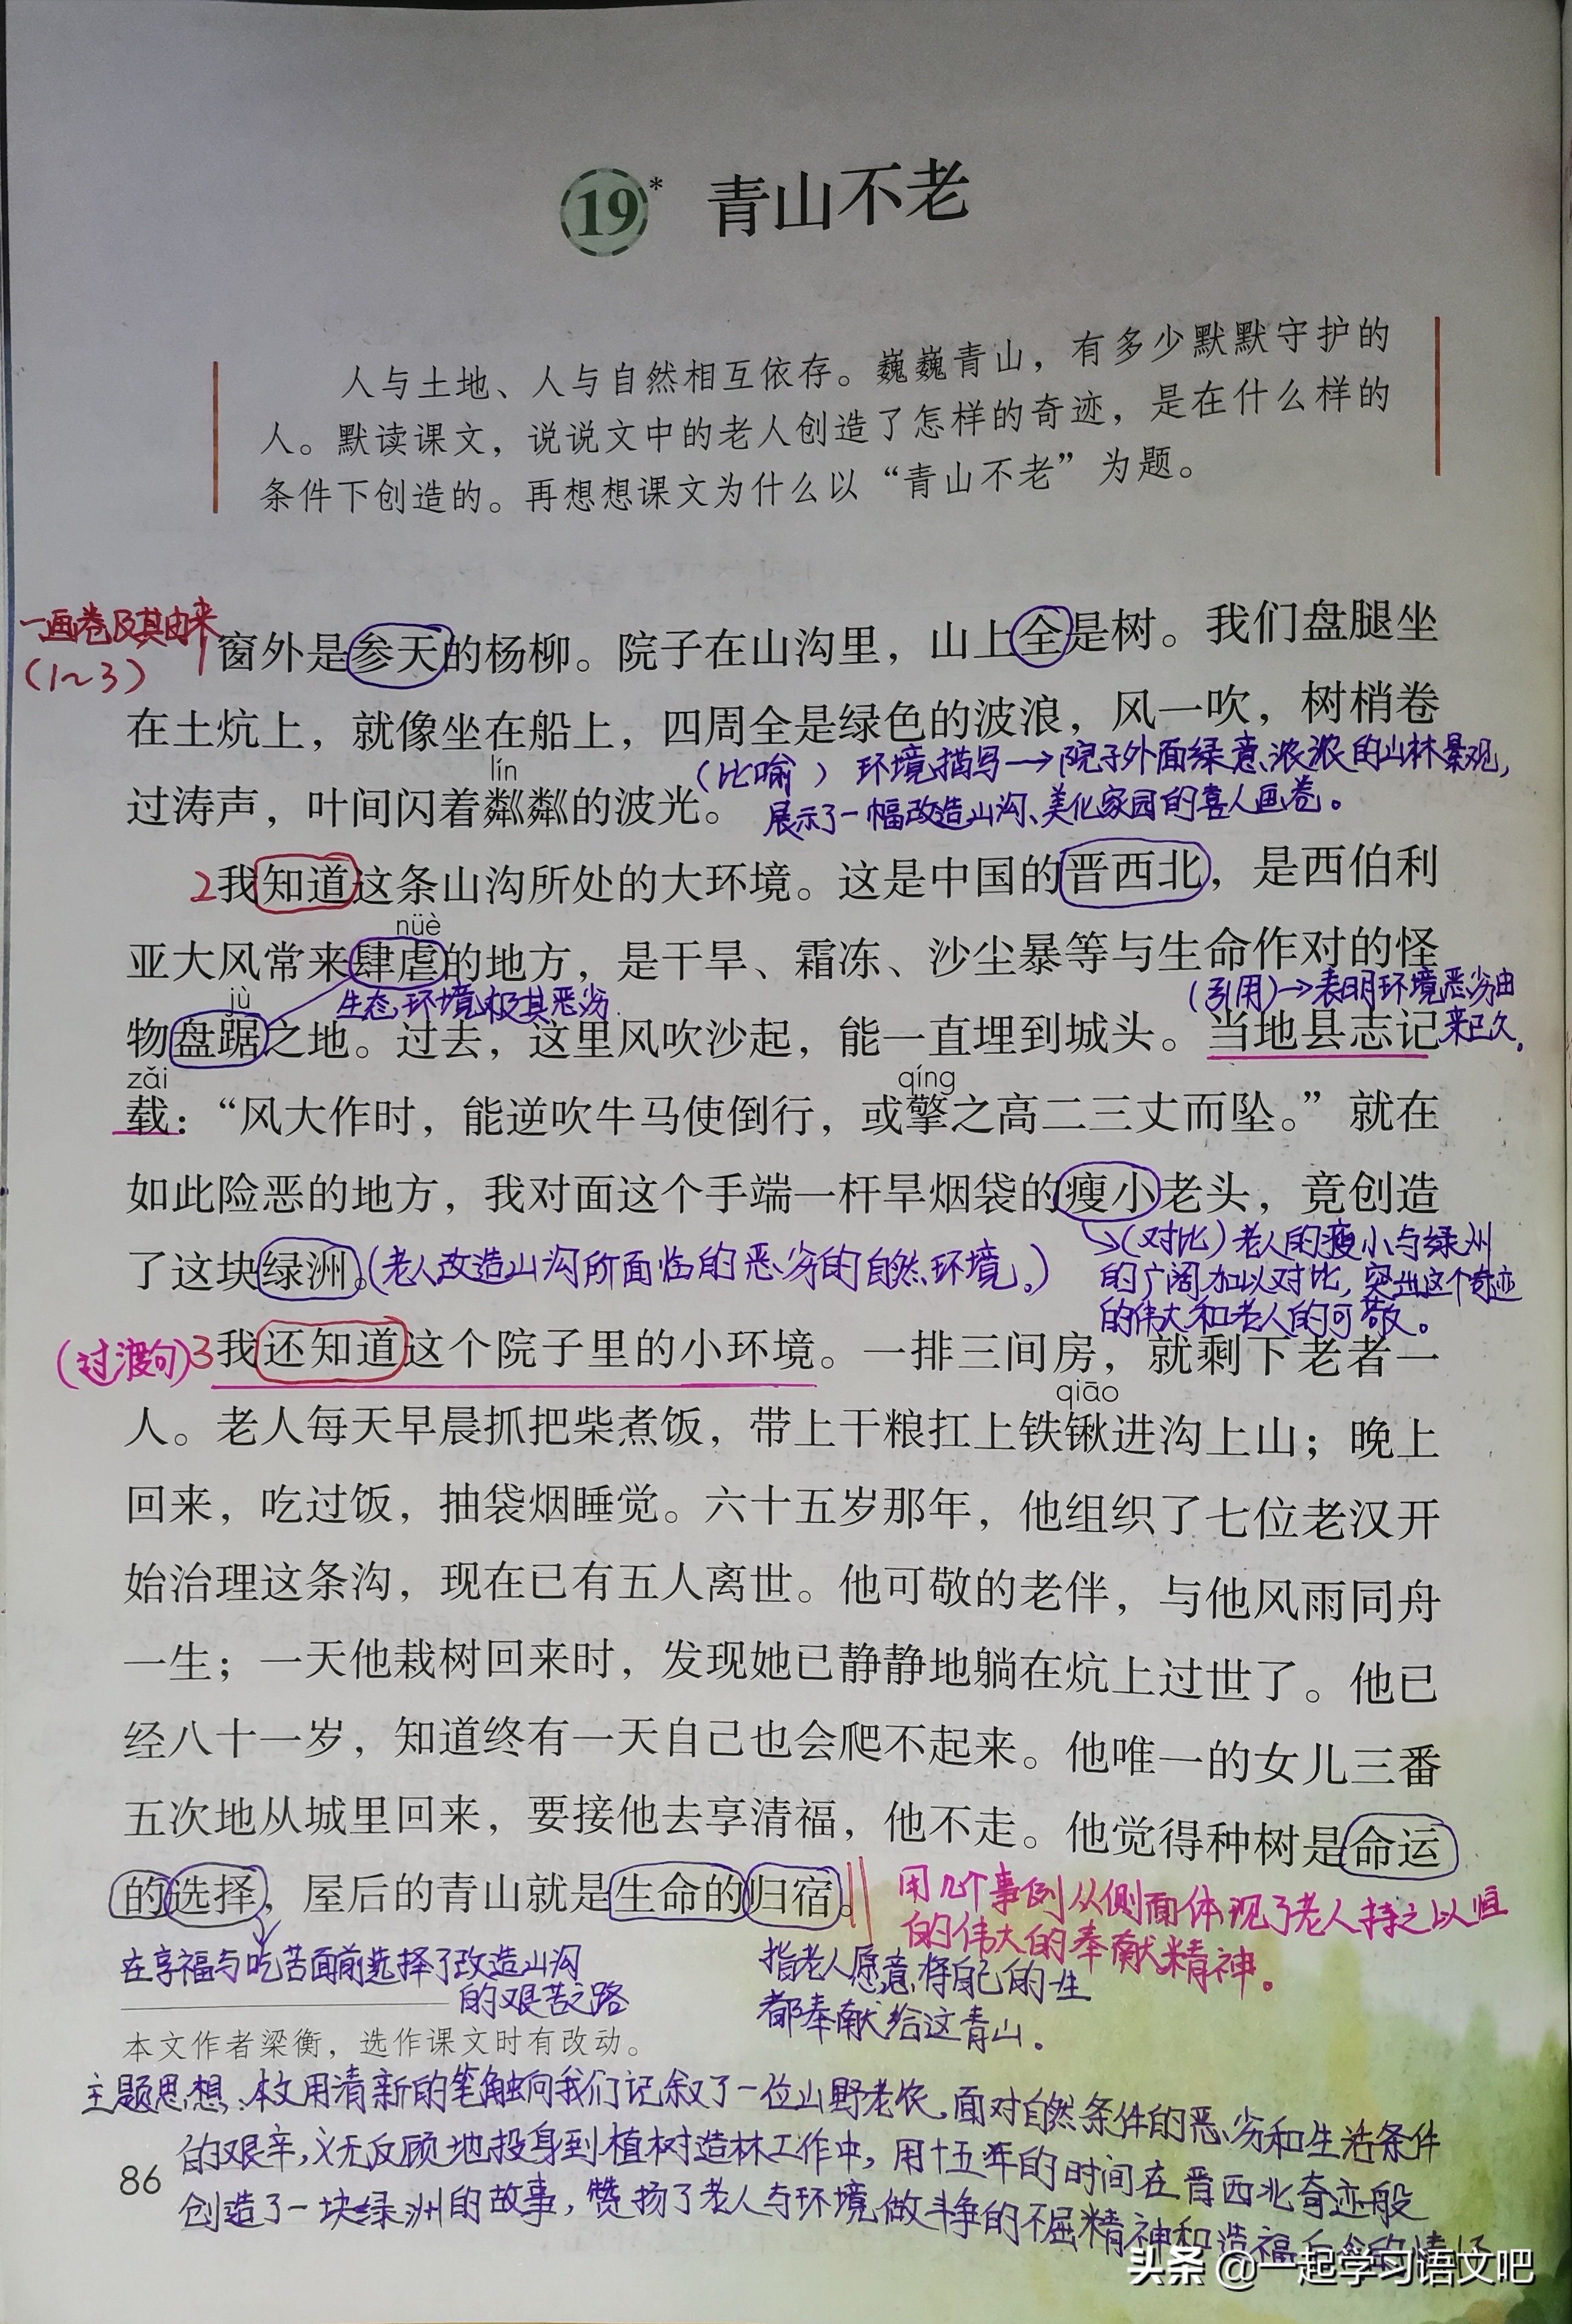 19* 青山不老
人与土地、人与自然相互依存。巍巍青山，有多少默默守护的
人。默读课文，说说文中的老人创造了怎样的奇迹，是在什么样的
条件下创造的。再想想课文为什么以“青山不老”为题。
一画卷及其由来
(1~3)
1窗外是参天的杨柳。院子在山沟里，山上全是树。我们盘腿坐
在土炕上，就像坐在船上，四周全是绿色的波浪，风一吹，树梢卷
lín
过涛声，叶间闪着粼粼的波光。
(比喻) 环境描写→院子外面绿意浓浓的山林景观，
展示了一幅改造山沟、美化家园的喜人画卷。
2我知道这条山沟所处的大环境。这是中国的晋西北，是西伯利
nüè
亚大风常来肆虐的地方，是干旱、霜冻、沙尘暴等与生命作对的怪
生态环境极其恶劣
(引用)→表明环境恶劣由
来已久。
jù
物盘踞之地。过去，这里风吹沙起，能一直埋到城头。当地县志记
zǎi qíng
载：“风大作时，能逆吹牛马使倒行，或擎之高二三丈而坠。”就在
如此险恶的地方，我对面这个手端一杆旱烟袋的瘦小老头，竟创造
了这块绿洲。(老人改造山沟所面临的恶劣的自然环境。)
(对比)老人的瘦小与绿洲
的广阔加以对比，突出这个奇迹
的伟大和老人的可敬。
(过渡句)3我还知道这个院子里的小环境。一排三间房，就剩下老者一
qiāo
人。老人每天早晨抓把柴煮饭，带上干粮扛上铁锹进沟上山；晚上
回来，吃过饭，抽袋烟睡觉。六十五岁那年，他组织了七位老汉开
始治理这条沟，现在已有五人离世。他可敬的老伴，与他风雨同舟
一生；一天他栽树回来时，发现她已静静地躺在炕上过世了。他已
经八十一岁，知道终有一天自己也会爬不起来。他唯一的女儿三番
五次地从城里回来，要接他去享清福，他不走。他觉得种树是命运
的选择，屋后的青山就是生命的归宿。
用几个事例从侧面体现了老人持之以恒
的伟大的奉献精神。
在享福与吃苦面前选择了改造山沟
的艰苦之路
指老人愿意将自己的一生
都奉献给这青山。
本文作者梁衡，选作课文时有改动。
主题思想：本文用清新的笔触向我们记叙了一位山野老农，面对自然条件的恶劣和生活条件
的艰辛，义无反顾地投身到植树造林工作中，用十五年的时间在晋西北奇迹般
创造了一块绿洲的故事，赞扬了老人与环境做斗争的不屈精神和造福
86
头条 @一起学习语文吧